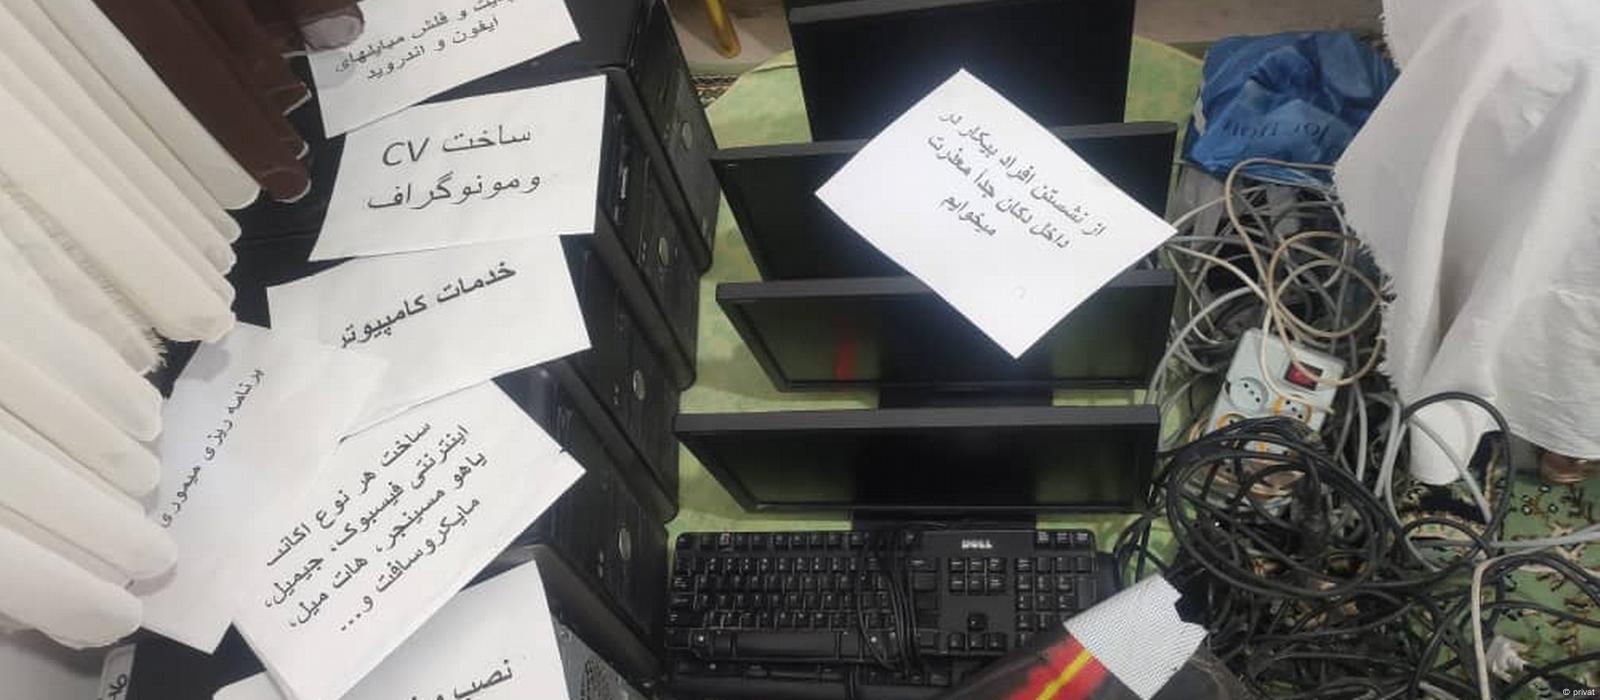 و فلش مبایلهای
ایفون و اندروید
ساخت CV
ومونوگراف
خدمات کامپیوتر
برنامه ریزی میموری
ساخت هر نوع اکانت
اینترنتی فیسبوک، جیمیل،
یاهو مسینجر، هات میل،
مایکروسافت و...
نصب و
از نشستن افراد بیکار در
داخل دکان جداً معذرت
میخوایم
DELL
© privat